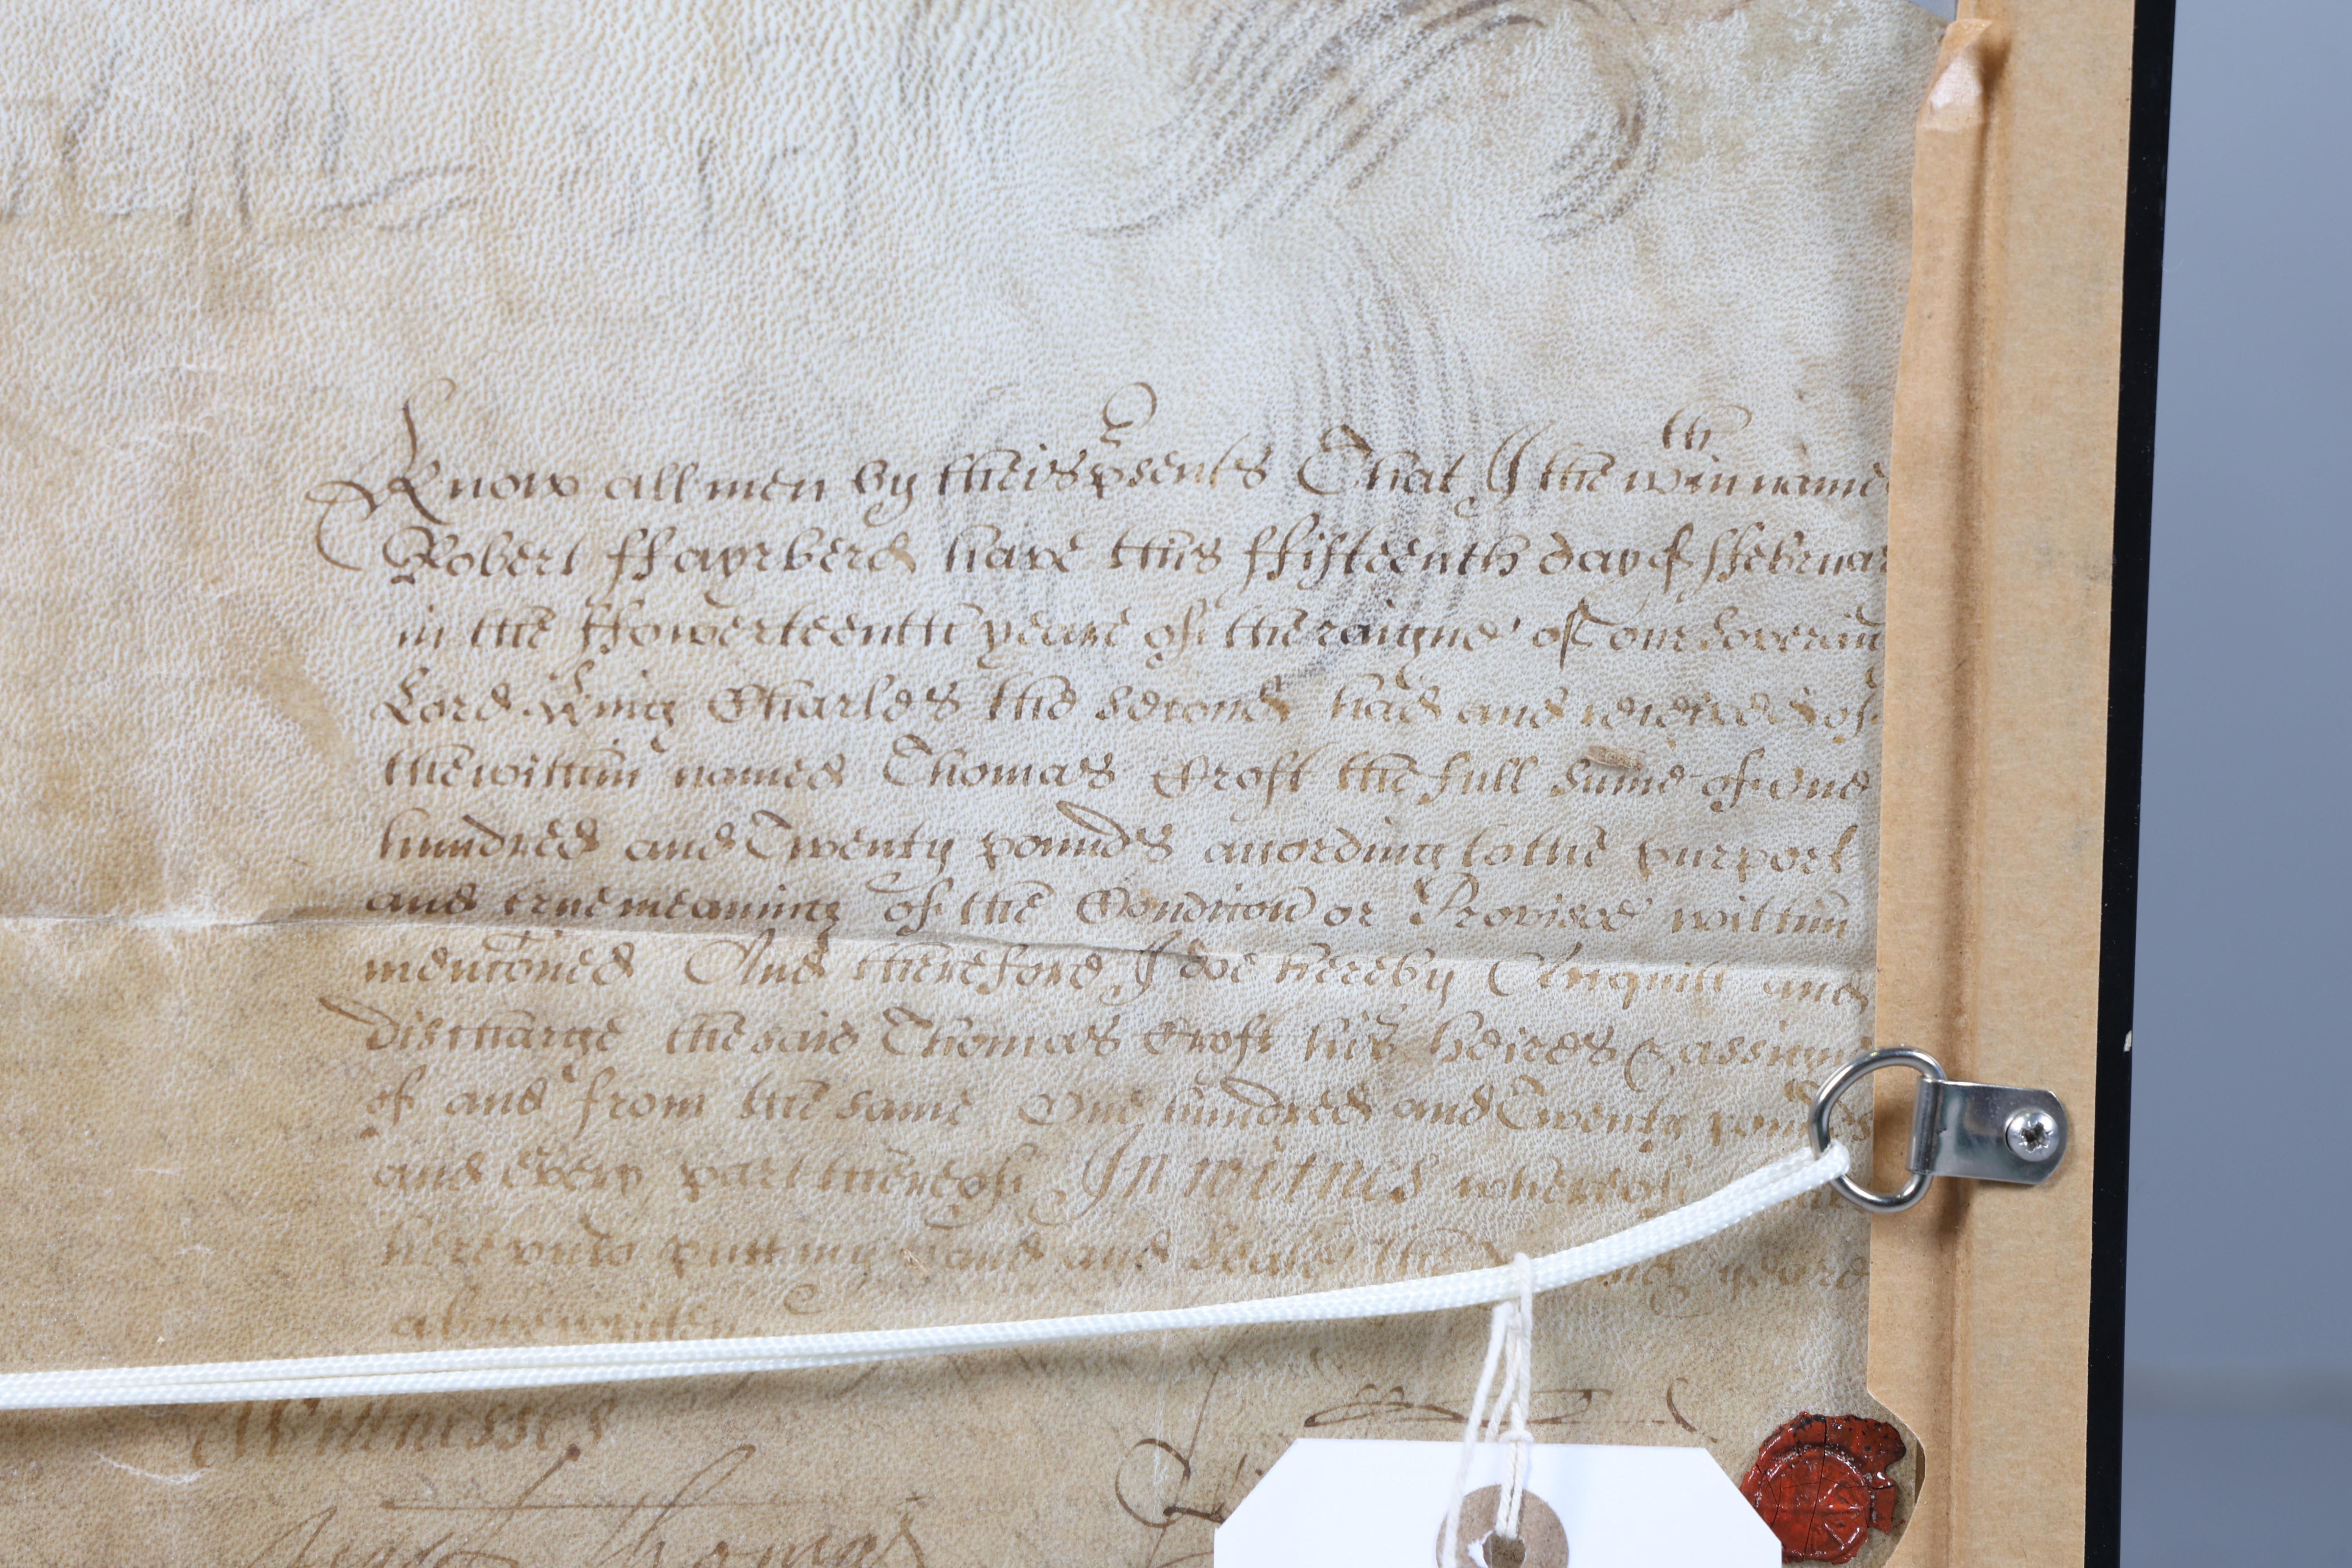 Know all men by theis p̱sents That I the wthin name
Robert ffayrberd have this ffifteenth day of ffebruar
in the ffowerteenth yeare of the raigne of our Soveraign
Lord King Charles the second had and received of
the within named Thomas Croft the full summe of one
hundred and Twenty pounds according to the purport
and true meaning of the Condicion or Provisoe within
mencioned And therefore I doe hereby Acquitt and
discharge the said Thomas Croft his heires & assigns
of and from the same One hundred and Twenty pounds
and every part thereof In witnes whereof
here unto putt my hand and Seale the yeare
above written
Witnesses
Thomas